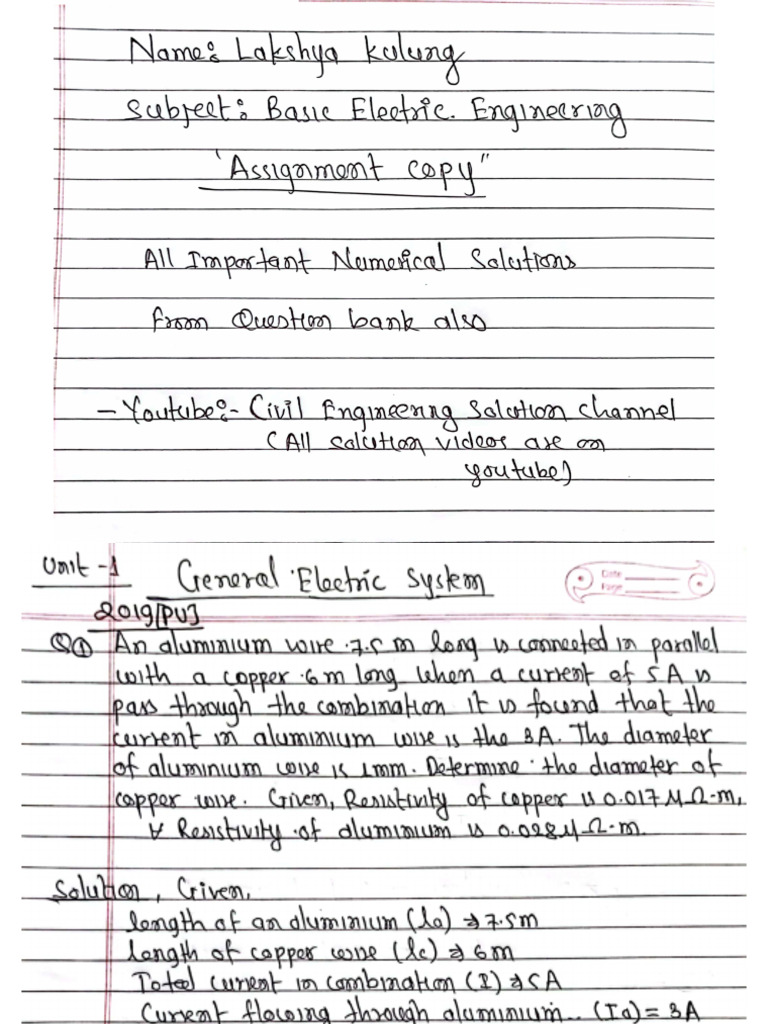 Name: Lakshya Kulung
Subject: Basic Electric. Engineering
"Assignment copy"
All Important Numerical Solutions
from Question bank also
- Youtube:- Civil Engineering Solution channel
(All solution videos are on
youtube)
Unit -1 General Electric System
Date
Page
2019[PU]
Q① An aluminium wire 7.5 m long is connected in parallel
with a copper 6m long when a current of 5A is
pass through the combination it is found that the
current in aluminium wire is the 3A. The diameter
of aluminium wire is 1mm. Determine the diameter of
copper wire. Given, Resistivity of copper is 0.017 μΩ-m,
& Resistivity of aluminium is 0.028μΩ-m.
Solution, Given,
length of an aluminium (la) ⇒ 7.5m
length of copper wire (lc) ⇒ 6m
Total current in combination (I) ⇒ 5A
Current flowing through aluminium.. (Ia) = 3A